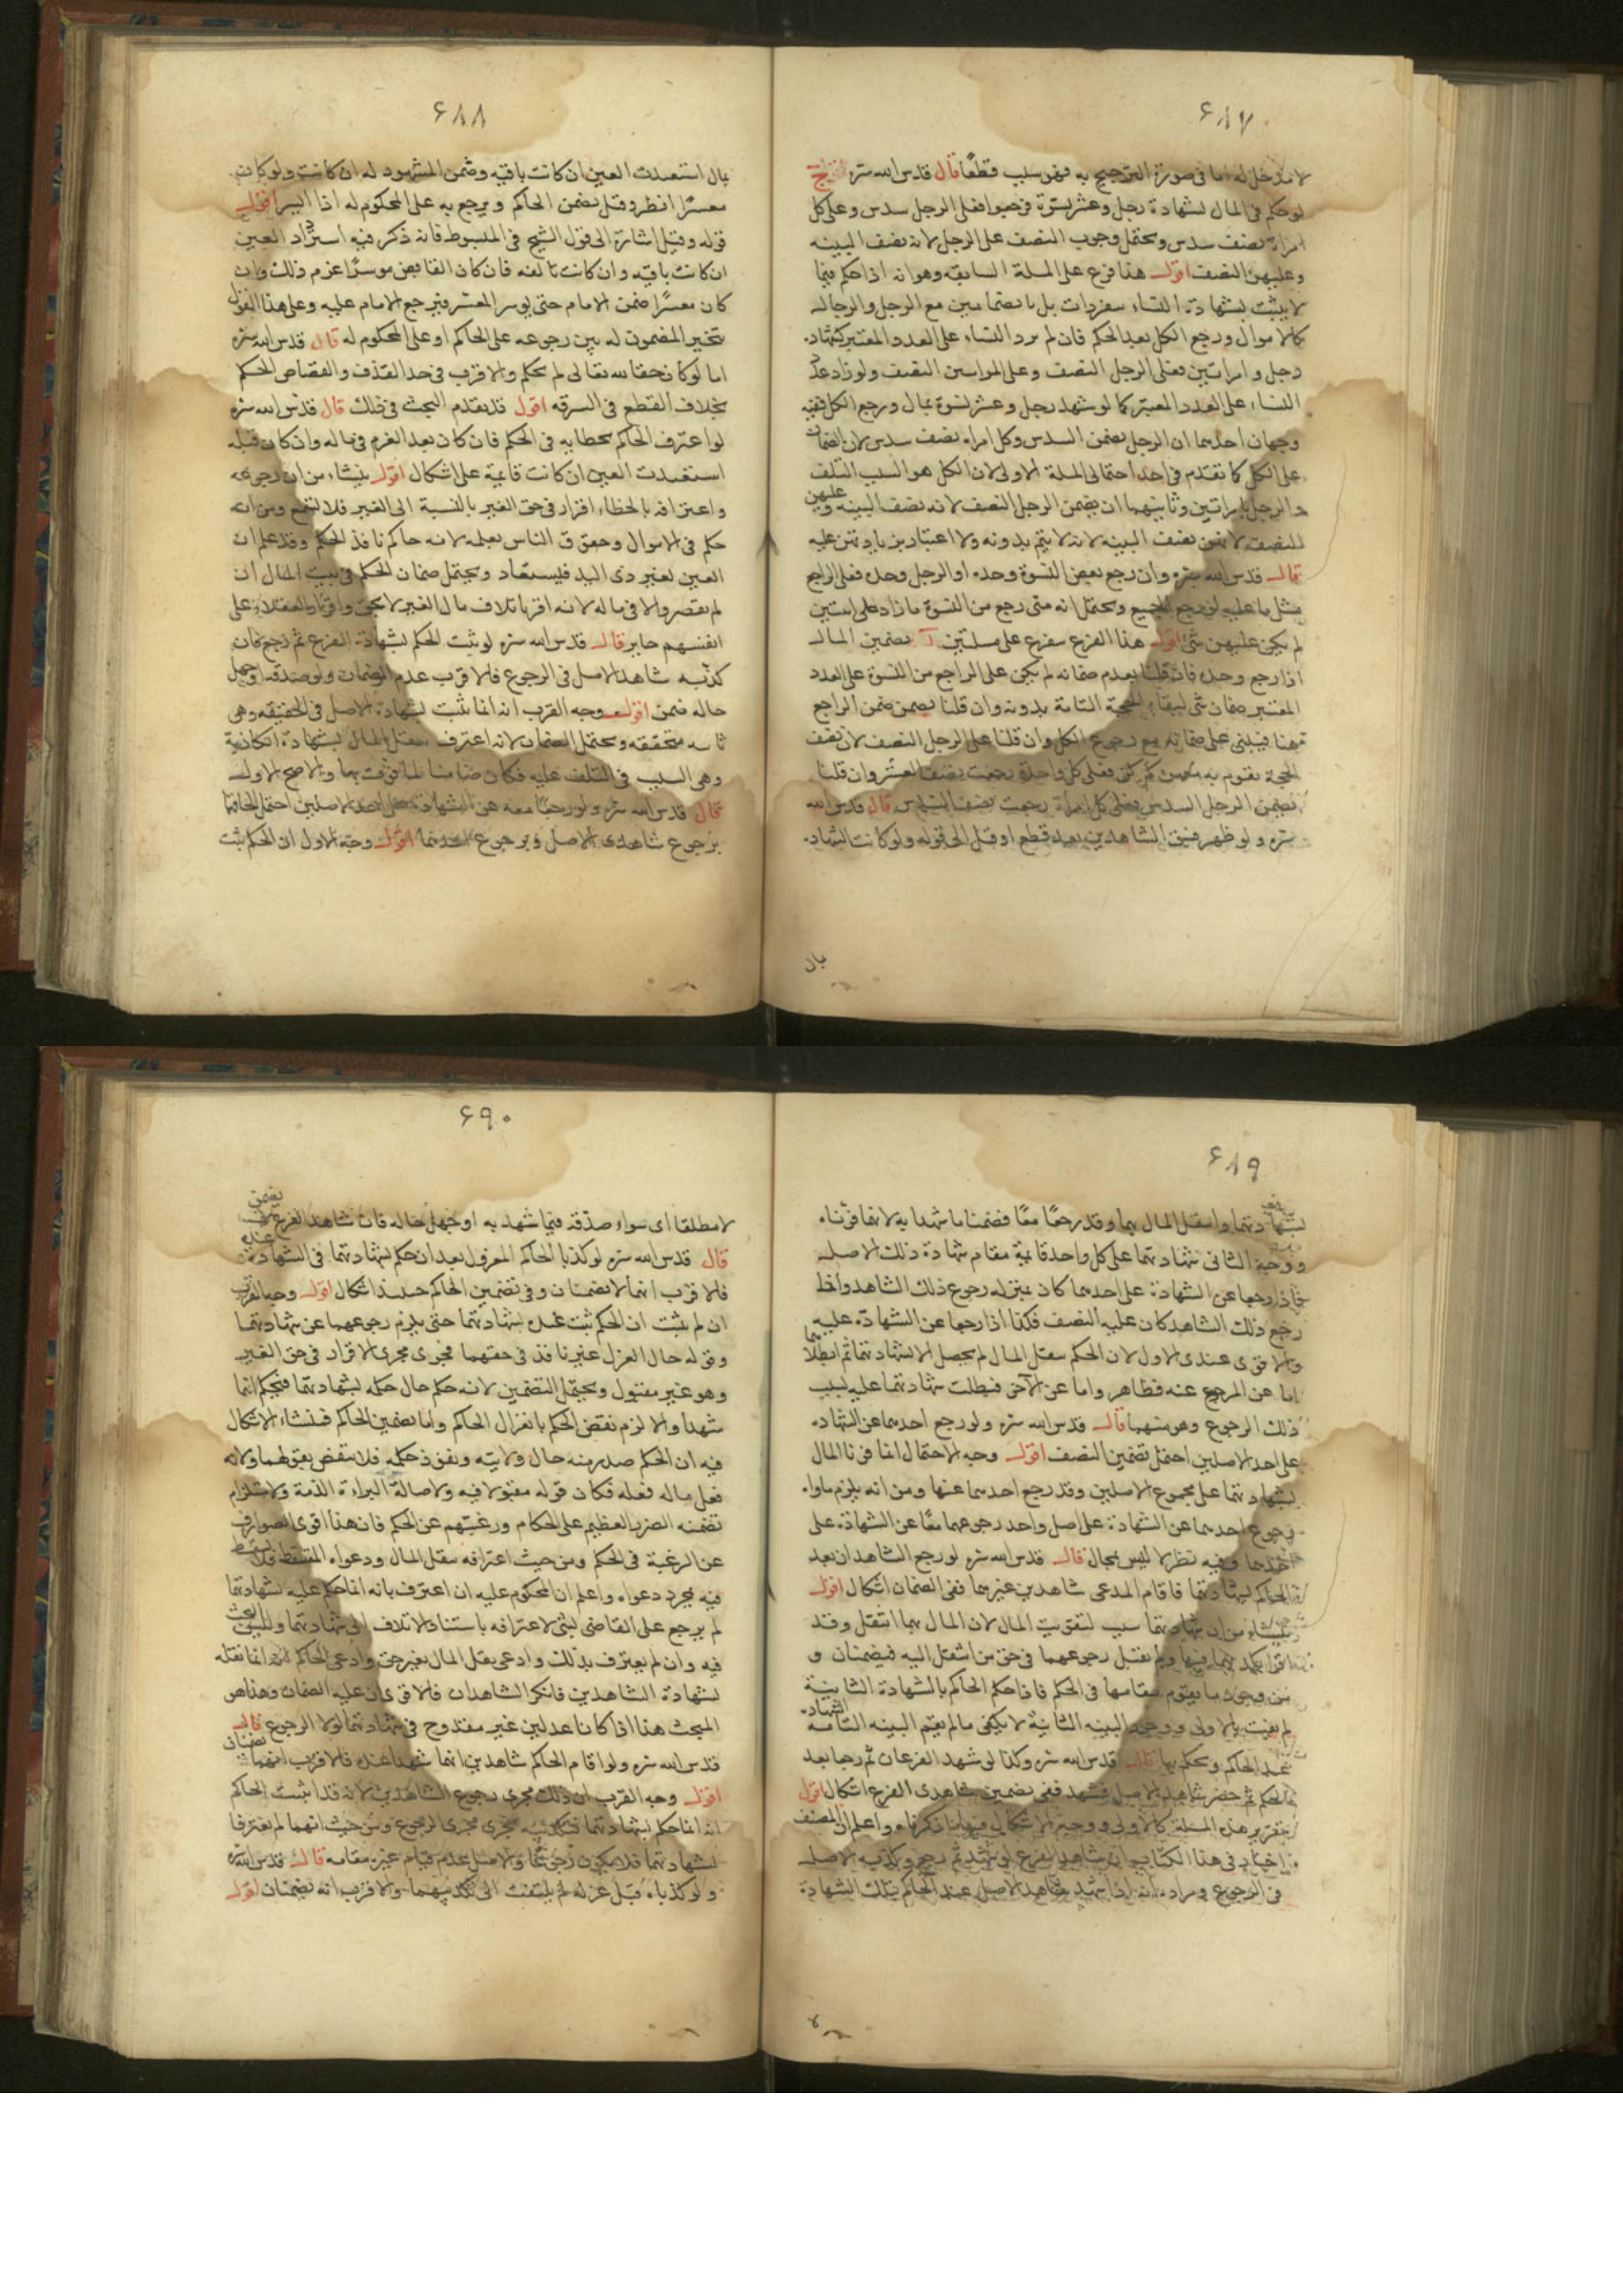 ۶۸۷
لا مدخل له اما فى صورة الترجيح به فهو سبب قطعًا قال قدس الله سره
لو حكم فى المال بشهادة رجل وعشر نسوة فرجعوا فعلى الرجل سدس وعلى كل
امراة نصف سدس ويحتمل وجوب النصف على الرجل لانه نصف البينه
وعليهن النصف اقول هذا فرع على المسئلة السابقه وهو انه اذا حكم فيما
لا يثبت بشهادة النساء منفردات بل بانضمامهن مع الرجل والرجال
كالاموال ورجع الكل بعد الحكم فان لم يزد النساء على العدد المعتبر كشهادة
رجل و امراتين فعلى الرجل النصف وعلى المراتين النصف ولو زاد عدد
النساء على العدد المعتبر كما لو شهد رجل وعشر نسوة بمال ورجع الكل ففيه
وجهان احدهما ان الرجل يضمن السدس وكل امراة نصف سدس لان الضمان
على الكل كما تقدم فى احد احتمالى المسئلة الاولى لان الكل هو السبب المتلف
والرجل بامراتين وثانيهما ان يضمن الرجل النصف لانه نصف البينه وعليهن
النصف لانهن نصف البينه لانه لا يتم بدونه ولا اعتبار بزيادتهن عليه
قال قدس الله سره وان رجع بعض النسوة وحده او الرجل وحده فعلى الراجع
مثل ما عليه لو رجع الجميع ويحتمل انه متى رجع من النسوة ما زاد على اثنتين
لم يكن عليهن شئ اقول هذا الفرع متفرع على مسئلتين آ تضمين المال
اذا رجع وحده فان قلنا بعدم ضمانه لم يكن على الراجع من النسوة على العدد
المعتبر ضمان شئ لبقاء الحجة التامة بدونه وان قلنا يضمن ضمن الراجع
هنا فيبنى على ضمانه مع رجوع الكل وان قلنا على الرجل النصف لان نصف
الحجة تقوم به فعلى كل واحدة رجعت نصف العشر وان قلنا
يضمن الرجل السدس فعلى كل امراة رجعت نصف السدس قال قدس الله
سره ولو ظهر فسق الشاهدين بعد قطع او قتل الى قوله ولو كانت الشهادة
بال
۶۸۸
بمال استعيدت العين ان كانت باقية وضمن المشهود له ان كانت ولو كان
معسرًا انظر وقيل يضمن الحاكم ويرجع به على المحكوم له اذا ايسر اقول
قوله وقيل اشارة الى قول الشيخ فى المبسوط فانه ذكر فيه استرداد العين
ان كانت باقية وان كانت تالفه فان كان القابض موسرًا غرم ذلك وان
كان معسرًا ضمن الامام حتى يوسر المعسر فيرجع الامام عليه وعلى هذا القول
يتخير المضمون له بين رجوعه على الحاكم او على المحكوم له قال قدس الله سره
اما لو كان حقا لله تعالى لم يحكم والاقرب فى حد القذف والقصاص الحكم
بخلاف القطع فى السرقه اقول قد تقدم البحث فى ذلك قال قدس الله سره
لو اعترف الحاكم بخطايه فى الحكم فان كان بعد الغرم فى ماله وان كان قبله
استعيدت العين ان كانت قايمة على اشكال اقول ينشاء من ان رجوعه
واعترافه بالخطاء اقرار فى حق الغير بالنسبة الى الغير فلا تنتزع ومن انه
حكم فى الاموال وحقوق الناس بعلمه لانه حاكم نافذ الحكم وقد علم ان
العين لغير ذى اليد فليستعاد ويحتمل ضمان الحكم فى بيت المال ان
لم يقصر والا فى ماله لانه اقر باتلاف مال الغير لا بحق واقرار العقلاء على
انفسهم جايز قال قدس الله سره لو ثبت الحكم بشهادة الفرع ثم رجع فان
كذبه شاهد الاصل فى الرجوع فالاقرب عدم الضمان ولو صدقه او جهل
حاله ضمن اقول وجه القرب انه انما ثبت بشهادة الاصل فى الحقيقه وهى
ثابته متحققه ويحتمل الضمان لانه اعترف بنقل المال بشهادته الكاذبة
وهى السبب فى التلف عليه فكان ضامنا لما فوت بها والاصح الاول
قال قدس الله سره ولو رجعا معه عن الشهادة على احد الاصلين احتمل الحاقهما
برجوع شاهدى الاصل وبرجوع احدهما اقول وجه الاول ان الحكم ثبت
۶۸۹
بشهادتهما وانتقل المال بهما وقد رجعا معًا فضمنا ما شهدا به لانهما فوتاه
ووجه الثانى شهادتهما على كل واحد قايمة مقام شهادة ذلك الاصل
فاذا رجعا عن الشهادة على احدهما كان بمنزله رجوع ذلك الشاهد واذا
رجع ذلك الشاهد كان عليه النصف فكذا اذا رجعا عن الشهادة عليه
والاقوى عندى الاول لان الحكم بنقل المال لم يحصل الا بشهادتهما ثم ابطلا
اما عن المرجوع عنه فظاهر واما عن الآخر فبطلت شهادتهما عليه بسبب
ذلك الرجوع وهو منهما قال قدس الله سره ولو رجع احدهما عن الشهادة
على احد الاصلين احتمل تضمين النصف اقول وجه الاحتمال انهما فوتا المال
بشهادتهما على مجموع الاصلين وقد رجع احدهما عنها ومن انه يلزم مساواة
رجوع احدهما عن الشهادة على اصل واحد رجوعهما معًا عن الشهادة على
احدهما وفيه نظر لا ليس بمجال قال قدس الله سره لو رجع الشاهدان بعد
الحكم بشهادتهما فاقام المدعى شاهدين غيرهما ففى الضمان اشكال اقول
ينشاء من ان شهادتهما سبب لتفويت المال لان المال بهما انتقل وقد
اقرا بكذبهما فيها ولم يقبل رجوعهما فى حق من انتقل اليه فيضمنان و
من وجود ما يقوم مقامها فى الحكم فاذا حكم الحاكم بالشهادة الثانية
لم يفت بالاولى ووجود البينه الثانية لا يكفى ما لم يقم البينه الشهادة التامه
عند الحاكم ويحكم بها قال قدس الله سره وكذا لو شهد الفرعان ثم رجعا بعد
الحكم ثم حضر شاهد الاصل فشهد ففى تضمين شاهدى الفرع اشكال اقول
تقرير هذه المسئلة كالاولى ووجه الاشكال فيها ما ذكرناه واعلم ان المصنف
اختار فى هذا الكتاب ان شاهد الفرع لو شهد ثم رجع وكذبه الاصل
فى الرجوع ومراده انه اذا شهد شاهد الاصل عند الحاكم بتلك الشهادة
۶۹۰
لا مطلقا اى سواء صدقه فيما شهد به او جهل حاله فان شاهد الفرع يضمن
قال قدس الله سره لو كذبا الحاكم المعزول بعد ان حكم بشهادتهما فى الشهادة عنده
فالاقرب انهما لا يضمنان وفى تضمين الحاكم حينئذ اشكال اقول وجه القرب
ان لم يثبت ان الحكم ثبت عنده بشهادتهما حتى يلزم رجوعهما عن شهادتهما
وقوله حال العزل غير نافذ فى حقهما فجرى مجرى الاقرار فى حق الغير
وهو غير مقبول ويحتمل التضمين لانه حكم حال حكمه بشهادتهما فيحكم انهما
شهدا والا لزم نقض الحكم بانعزال الحاكم واما تضمين الحاكم فمنشاء الاشكال
فيه ان الحكم صدر منه حال ولايته ونفوذ حكمه فلا ينقض بقولهما ولانه
فعل ماله فعله فكان قوله مقبولا فيه ولاصالة البراءة الذمة ولاستلزام
تضمنه الضرر العظيم على الحكام ورغبتهم عن الحكم فان هذا اقوى الصوارف
عن الرغبة فى الحكم ومن حيث اعترافه بنقل المال ودعواه المسقط فلا يسقط
فيه بمجرد دعواه واعلم ان المحكوم عليه ان اعترف بانه انما حكم عليه بشهادتهما
لم يرجع على القاضى بشئ لاعترافه باستناد الاتلاف الى شهادتهما
فيه وان لم يعترف بذلك وادعى نقل المال بغير حق وادعى الحاكم انه انما نقله
بشهادة الشاهدين فانكر الشاهدان فالاقوى ان عليه الضمان وهنا ص
المبحث هذا اذا كانا عدلين غير مقدوح فى شهادتهما لولا الرجوع قال
قدس الله سره ولو اقام الحاكم شاهدين انهما شهدا عنده فالاقرب انهما يضمنان
اقول وجه القرب ان ذلك يجرى مجرى رجوع الشاهدين لانه قد اثبت الحاكم
انه انما حكم بشهادتهما فتكذيبه يجرى مجرى الرجوع ومن حيث انهما لم يعترفا
بشهادتهما فلا يكون رجوعًا والاصل عدم قيام غيره مقامه قال قدس الله سره
ولو كذباه قبل عزله لم يلتفت الى تكذيبهما والاقرب انه يضمنان اقول